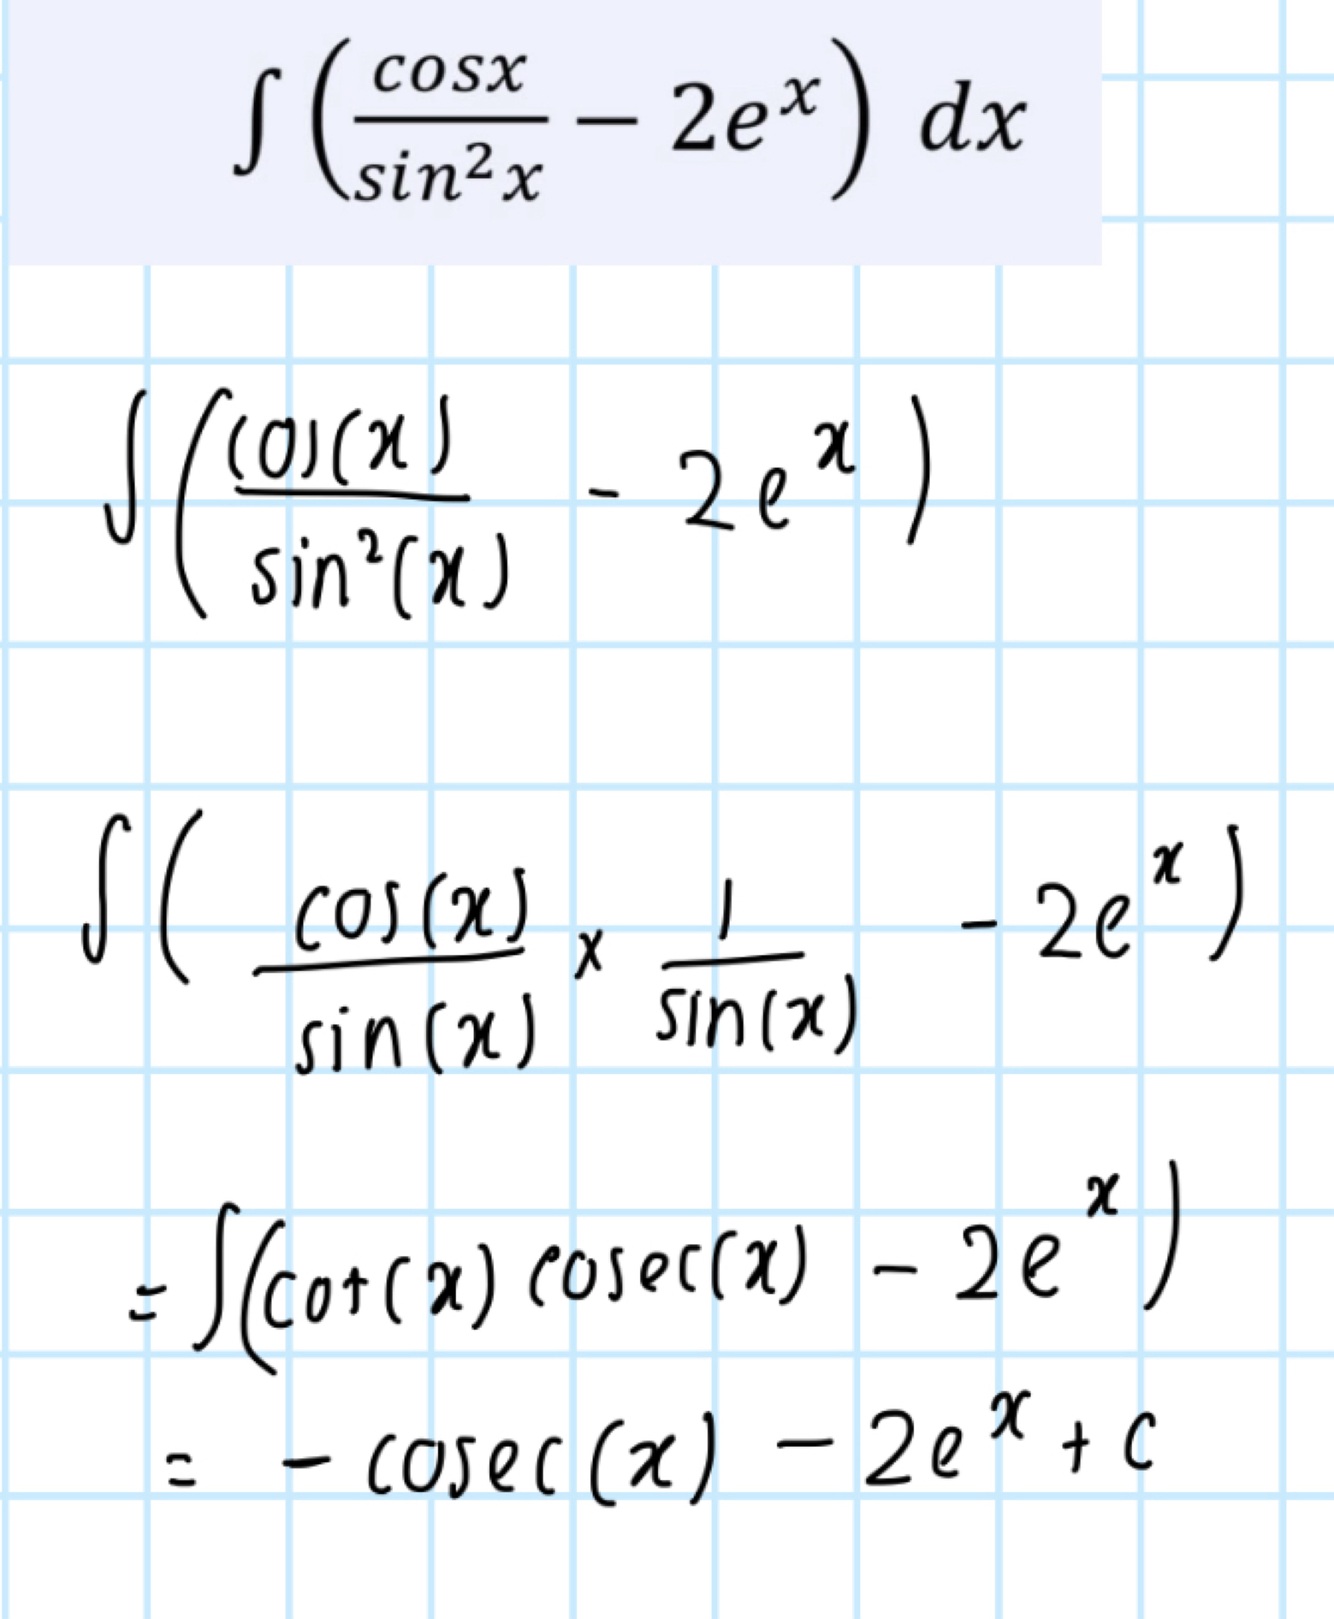 ∫ (cosx/sin²x − 2eˣ) dx
∫ (cos(x)/sin²(x) - 2eˣ)
∫ ( cos(x)/sin(x) × 1/sin(x) - 2eˣ)
= ∫(cot(x) cosec(x) - 2eˣ)
= - cosec(x) - 2eˣ + c